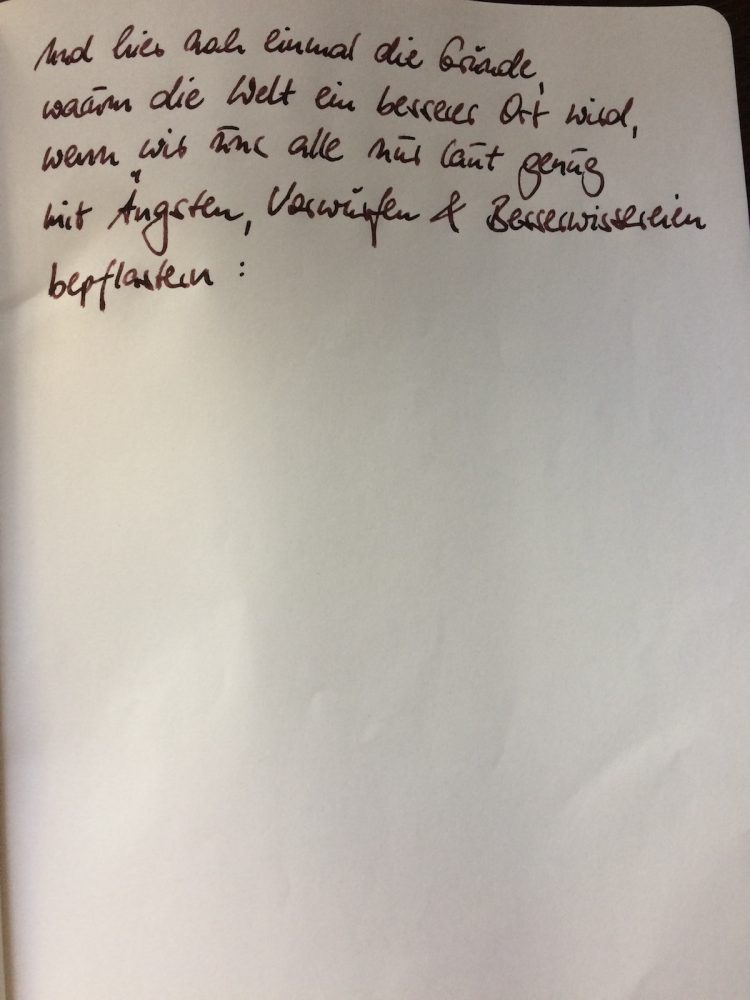 Und hier noch einmal die Gründe,
warum die Welt ein besserer Ort wird,
wenn wir uns alle nur laut genug
mit Ängsten, Vorwürfen & Besserwissereien
bepflastern :